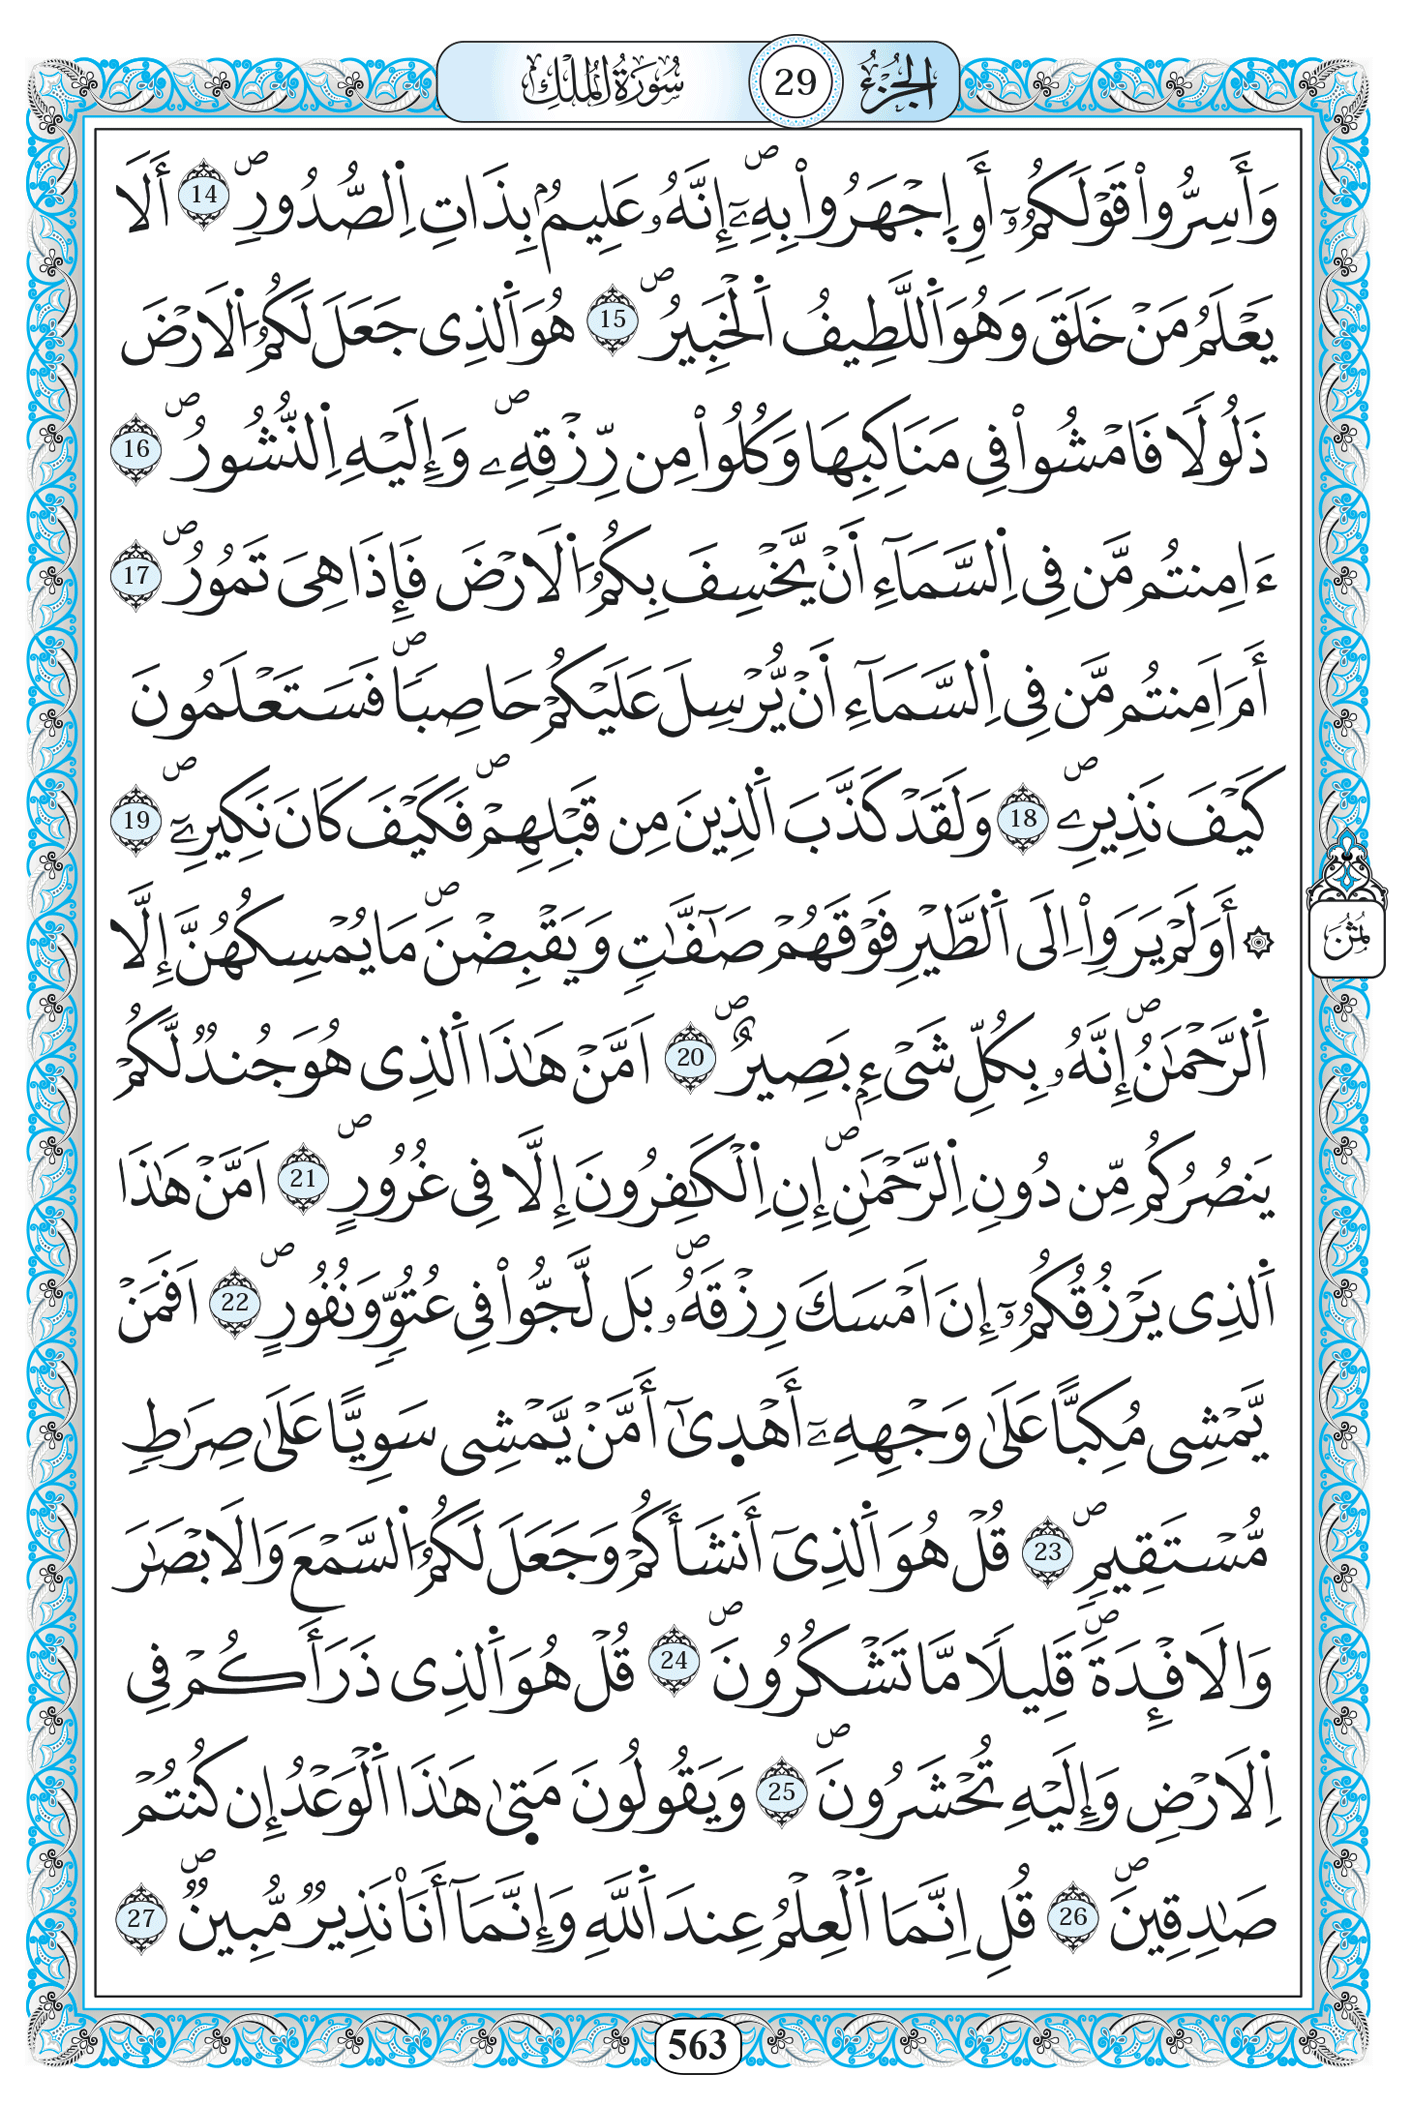 الجزء 29 سورة الملك
وَأَسِرُّواْ قَوْلَكُمُۥٓ أَوِ اِ۪جْهَرُواْ بِهِۦٓۖ إِنَّهُۥ عَلِيمُۢ بِذَاتِ اِ۬لصُّدُورِۖ 14 أَلَا
يَعْلَمُ مَنْ خَلَقَ وَهُوَ اَ۬للَّطِيفُ اَ۬لْخَبِيرُۖ 15 هُوَ اَ۬لذِى جَعَلَ لَكُمُ اُ۬لَارْضَ
ذَلُولًا فَامْشُواْ فِى مَنَاكِبِهَا وَكُلُواْ مِن رِّزْقِهِۦۖ وَإِلَيْهِ اِ۬لنُّشُورُۖ 16
ءَا۬مِنتُم مَّن فِى اِ۬لسَّمَآءِ اَنْ يَّخْسِفَ بِكُمُ اُ۬لَارْضَ فَإِذَا هِىَ تَمُورُۖ 17
أَمَ اَمِنتُم مَّن فِى اِ۬لسَّمَآءِ اَنْ يُّرْسِلَ عَلَيْكُمْ حَاصِباٗۖ فَسَتَعْلَمُونَ
كَيْفَ نَذِيرِۦۖ 18 وَلَقَدْ كَذَّبَ اَ۬لذِينَ مِن قَبْلِهِمْۖ فَكَيْفَ كَانَ نَكِيرِۦٓۖ 19
۞ أَوَلَمْ يَرَوِاْ اِلَى اَ۬لطَّيْرِ فَوْقَهُمْ صَٰٓفَّٰتٖ وَيَقْبِضْنَۖ مَا يُمْسِكُهُنَّ إِلَّا
اَ۬لرَّحْمَٰنُۖ إِنَّهُۥ بِكُلِّ شَىْءِۢ بَصِيرٌۖ 20 اَمَّنْ هَٰذَا اَ۬لذِى هُوَ جُندٞ لَّكُمْ
يَنصُرُكُم مِّن دُونِ اِ۬لرَّحْمَٰنِۖ إِنِ اِ۬لْكَٰفِرُونَ إِلَّا فِى غُرُورٍۖ 21 اَمَّنْ هَٰذَا
اَ۬لذِى يَرْزُقُكُمُۥٓ إِنَ اَمْسَكَ رِزْقَهُۥۖ بَل لَّجُّواْ فِى عُتُوّٖ وَنُفُورٍۖ 22 اَفَمَنْ
يَّمْشِى مُكِبًّا عَلَىٰ وَجْهِهِۦٓ أَهْد۪ىٰٓ أَمَّنْ يَّمْشِى سَوِيًّا عَلَىٰ صِرَٰطٖ
مُّسْتَقِيمٖۖ 23 قُلْ هُوَ اَ۬لذِىٓ أَنشَأَكُمْ وَجَعَلَ لَكُمُ اُ۬لسَّمْعَ وَالَابْصَٰرَ
وَالَافْـِٕدَةَۖ قَلِيلًا مَّا تَشْكُرُونَۖ 24 قُلْ هُوَ اَ۬لذِى ذَرَأَكُمْ فِى
اِ۬لَارْضِ وَإِلَيْهِ تُحْشَرُونَۖ 25 وَيَقُولُونَ مَت۪ىٰ هَٰذَا اَ۬لْوَعْدُ إِن كُنتُمْ
صَٰدِقِينَۖ 26 قُلِ اِنَّمَا اَ۬لْعِلْمُ عِندَ اَ۬للَّهِ وَإِنَّمَآ أَنَا۠ نَذِيرٞ مُّبِينٞۖ 27
ثمن
563